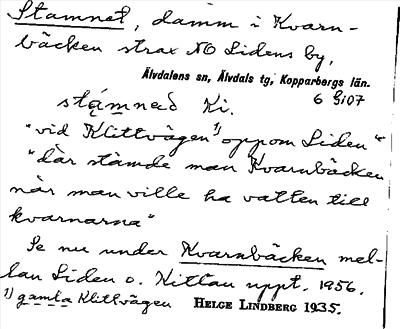 Stamnet, damm i Kvarn-
bäcken strax NO Lidens by,
Älvdalens sn, Älvdals tg, Kopparbergs län.
6 Gi07
stą́mneð Ki.
"vid Klittvägen¹⁾ oppom Liden"
"där stämde man Kvarnbäcken
när man ville ha vatten till
kvarnarna"
Se nu under Kvarnbäcken mel-
lan Liden o. Kittan uppt. 1956.
¹⁾ gamla Klittvägen HELGE LINDBERG 1935.